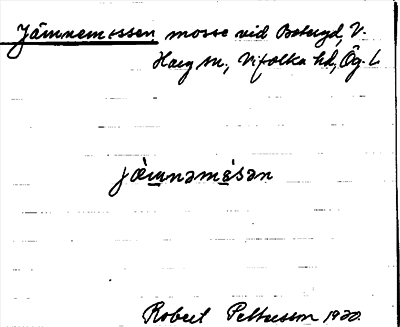 Jämnemossen mosse vid Boberyd, V.
Harg sn., Vifolka hd, Ög. L.
jæ̀mnəmɷ́sən
Robert Pettersson 1920.